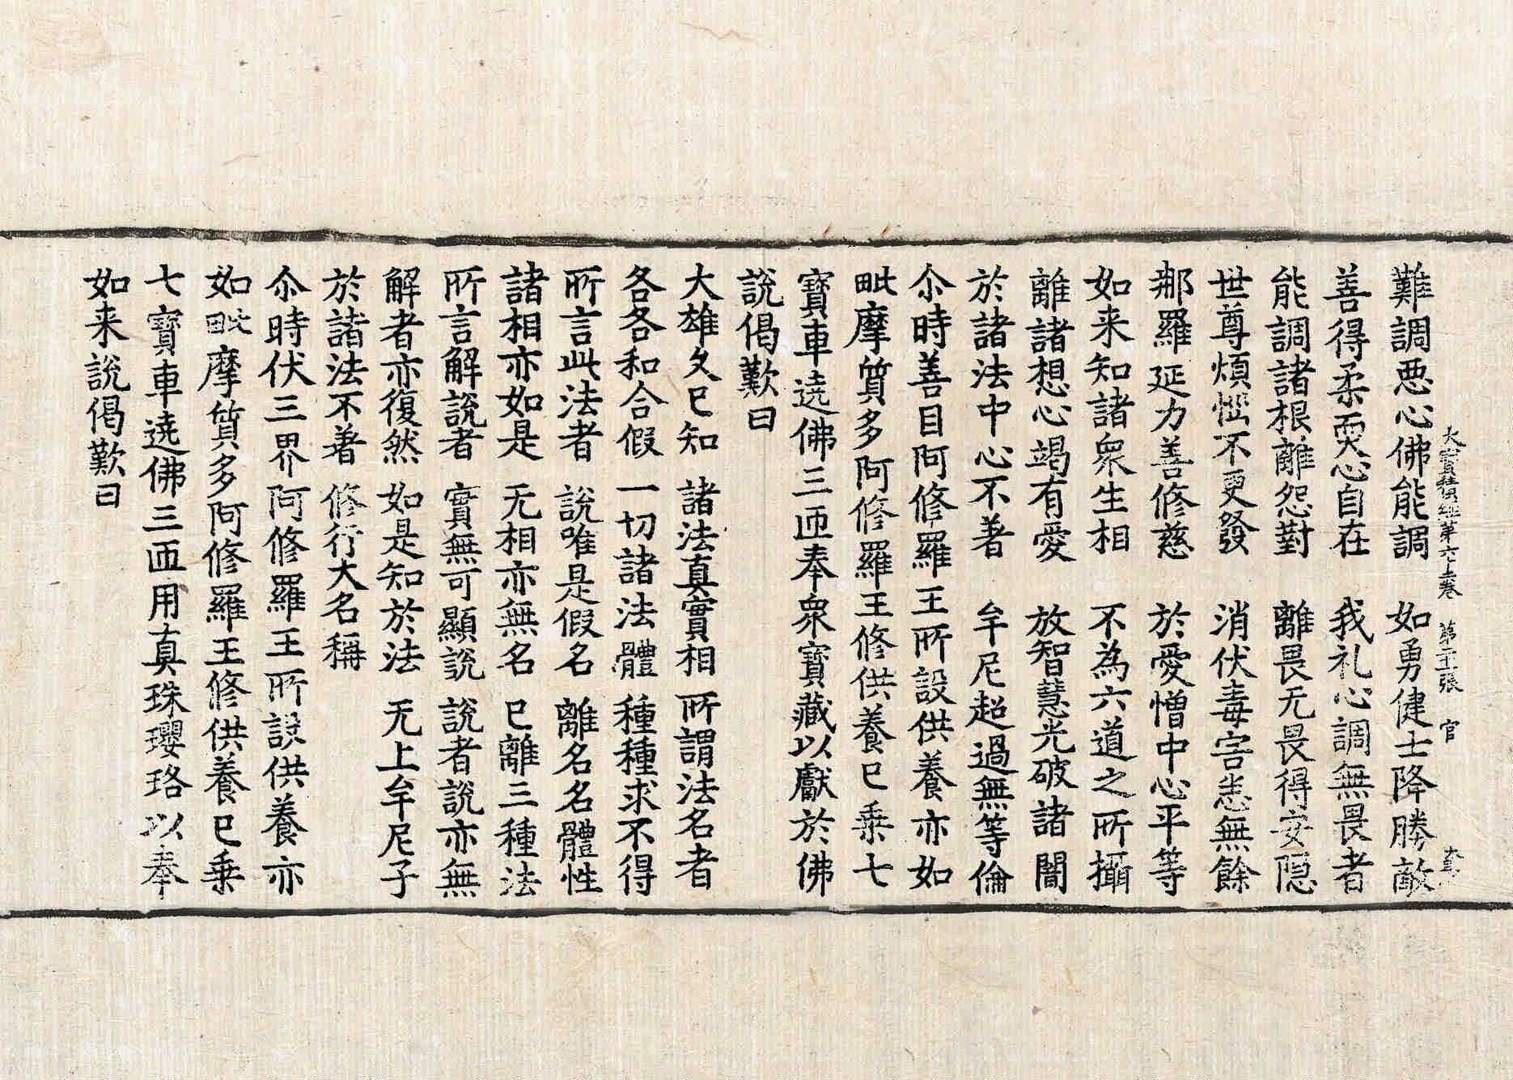 大寶積經第六十二卷 第二十張 官
難調惡心佛能調 如勇健士降勝敵
善得柔耎心自在 我礼心調無畏者
能調諸根離怨對 離畏无畏得安隠
世尊煩惱不更發 消伏毒害恚無餘
那羅延力善修慈 於愛憎中心平等
如来知諸衆生相 不為六道之所攝
離諸想心竭有愛 放智慧光破諸闇
於諸法中心不著 牟尼超過無等倫
尒時善目阿修羅王所設供養亦如
毗摩質多阿修羅王修供養已乗七
寶車遶佛三匝奉衆寶藏以獻於佛
說偈歎曰
大雄久已知 諸法真實相 所謂法名者
各各和合假 一切諸法體 種種求不得
所言此法者 說唯是假名 離名名體性
諸相亦如是 无相亦無名 已離三種法
所言解說者 實無可顯説 說者説亦無
解者亦復然 如是知於法 无上牟尼子
於諸法不著 修行大名稱
尒時伏三界阿修羅王所設供養亦
如毗摩質多阿修羅王修供養已乗
七寶車遶佛三匝用真珠瓔珞以奉
如来說偈歎曰